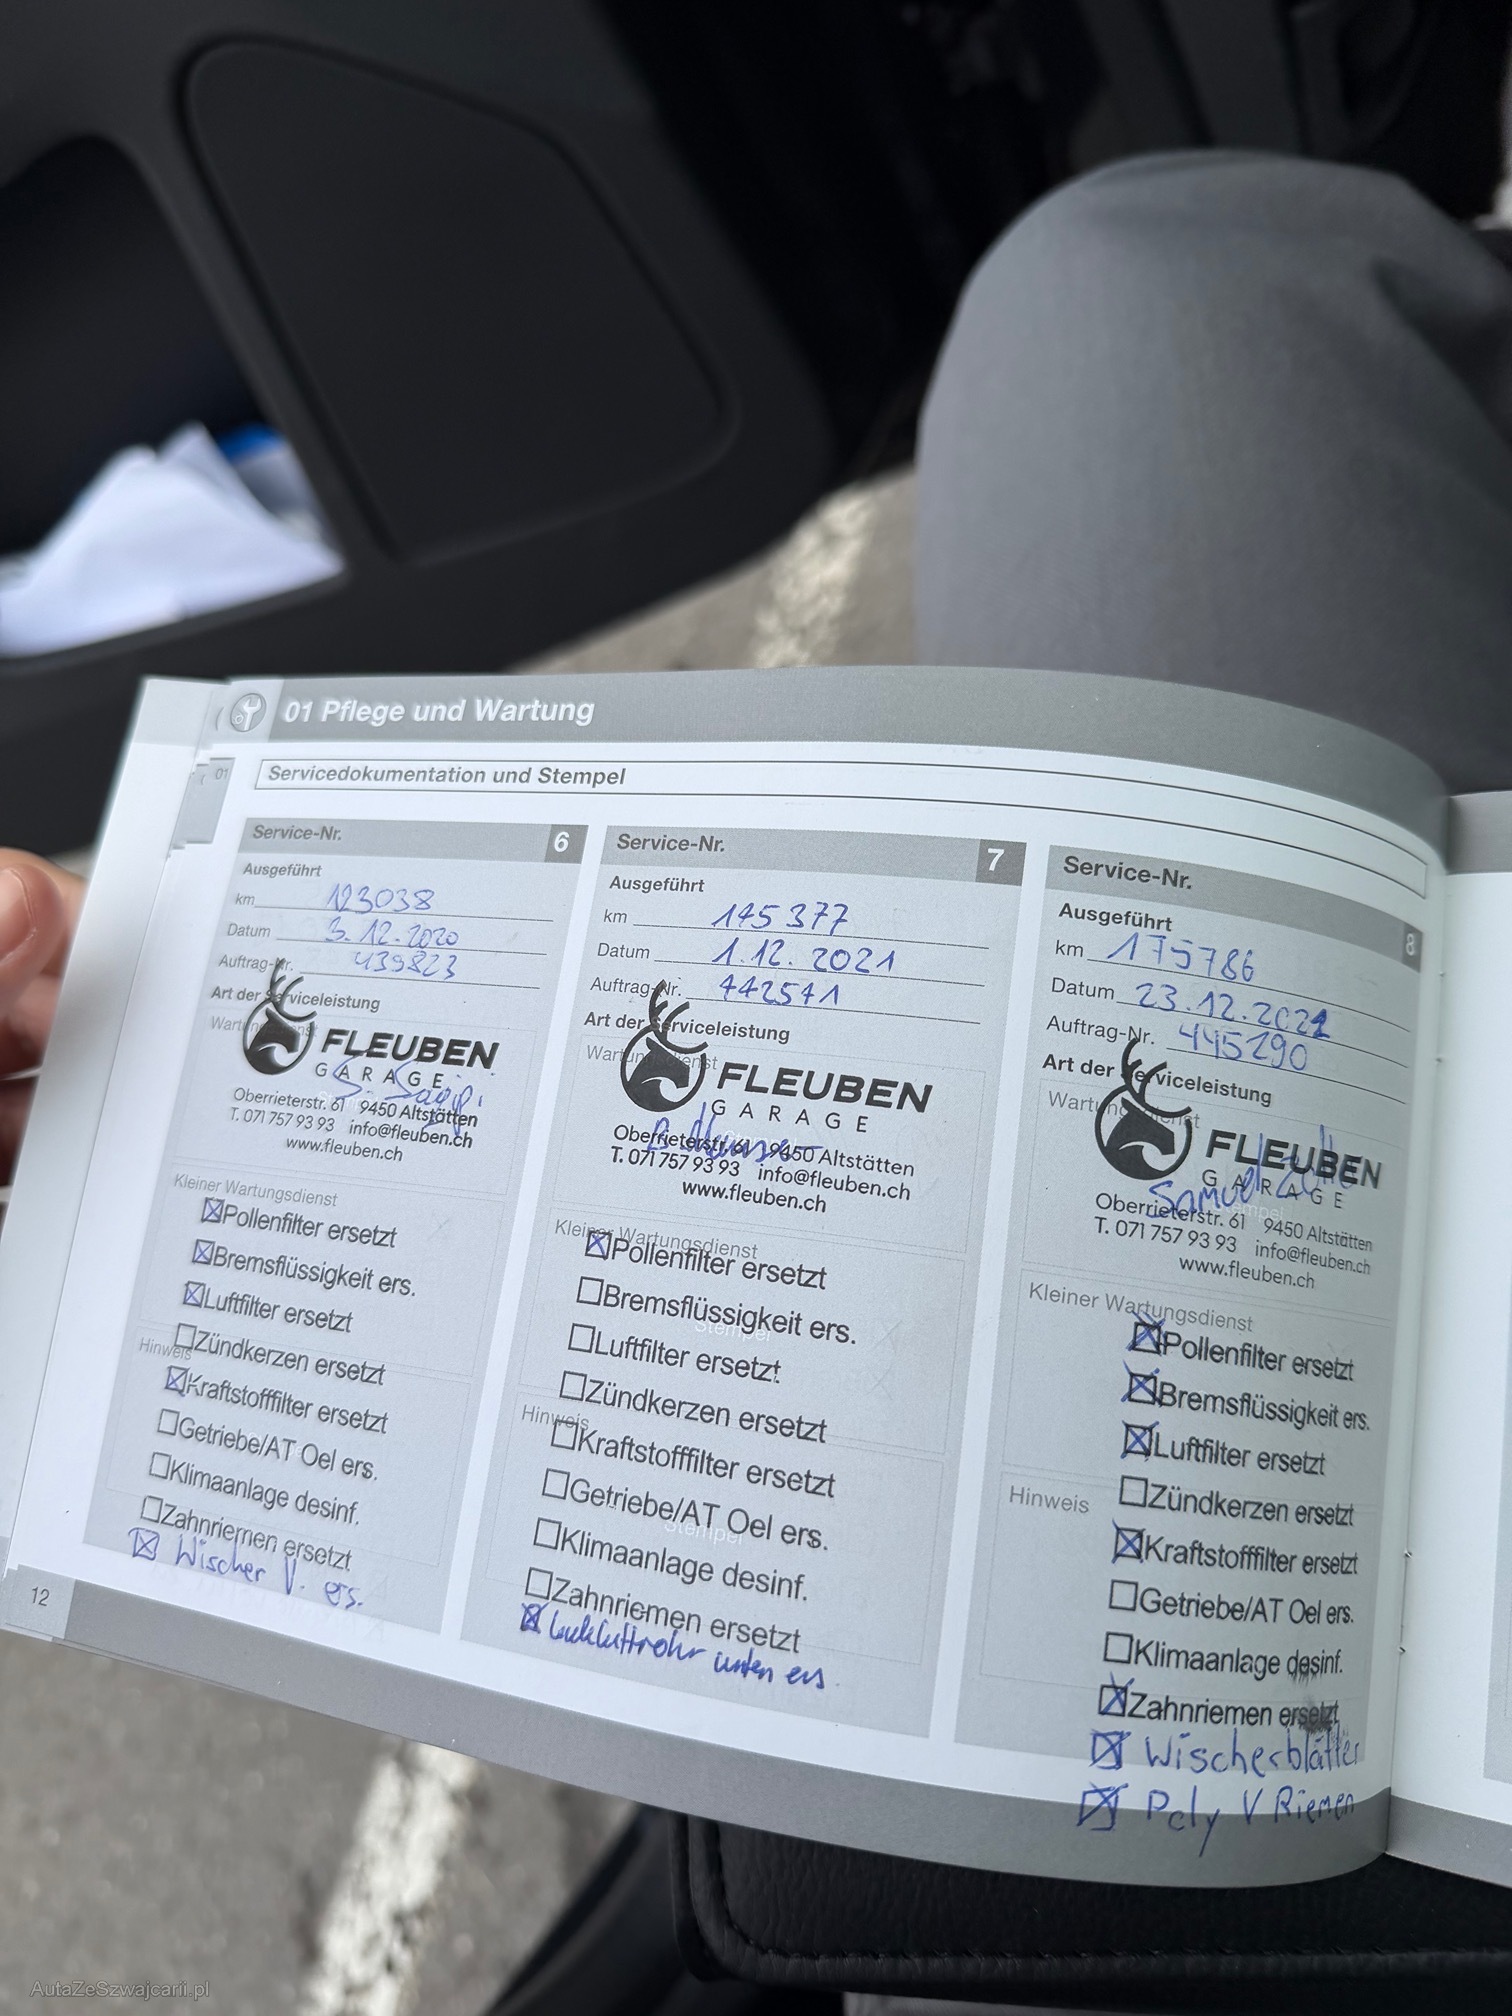 01 Pflege und Wartung
01
Servicedokumentation und Stempel
Service-Nr. 6
Ausgeführt
km 123038
Datum 3.12.2020
Auftrag-Nr. 439823
Art der Serviceleistung
Wartungsdienst
FLEUBEN
GARAGE
Oberrieterstr. 61 9450 Altstätten
T. 071 757 93 93 info@fleuben.ch
www.fleuben.ch
Kleiner Wartungsdienst
Pollenfilter ersetzt
Bremsflüssigkeit ers.
Luftfilter ersetzt
Zündkerzen ersetzt
Hinweis
Kraftstofffilter ersetzt
Getriebe/AT Oel ers.
Klimaanlage desinf.
Zahnriemen ersetzt
Wischer V. ers.
12
Service-Nr. 7
Ausgeführt
km 145377
Datum 1.12.2021
Auftrag-Nr. 442571
Art der Serviceleistung
Wartungsdienst
FLEUBEN
GARAGE
Oberrieterstr. 61 9450 Altstätten
T. 071 757 93 93 info@fleuben.ch
www.fleuben.ch
Kleiner Wartungsdienst
Pollenfilter ersetzt
Bremsflüssigkeit ers.
Stempel
Luftfilter ersetzt
Zündkerzen ersetzt
Hinweis
Kraftstofffilter ersetzt
Getriebe/AT Oel ers.
Stempel
Klimaanlage desinf.
Zahnriemen ersetzt
unten ers
Service-Nr. 8
Ausgeführt
km 175786
Datum 23.12.2022
Auftrag-Nr. 445290
Art der Serviceleistung
Wartungsdienst
FLEUBEN
GARAGE
Samuel
Stempel
Oberrieterstr. 61 9450 Altstätten
T. 071 757 93 93 info@fleuben.ch
www.fleuben.ch
Kleiner Wartungsdienst
Pollenfilter ersetzt
Bremsflüssigkeit ers.
Luftfilter ersetzt
Hinweis
Zündkerzen ersetzt
Kraftstofffilter ersetzt
Getriebe/AT Oel ers.
Klimaanlage desinf.
Zahnriemen ersetzt
Wischerblätter
Poly V Riemen
AutaZeSzwajcarii.pl